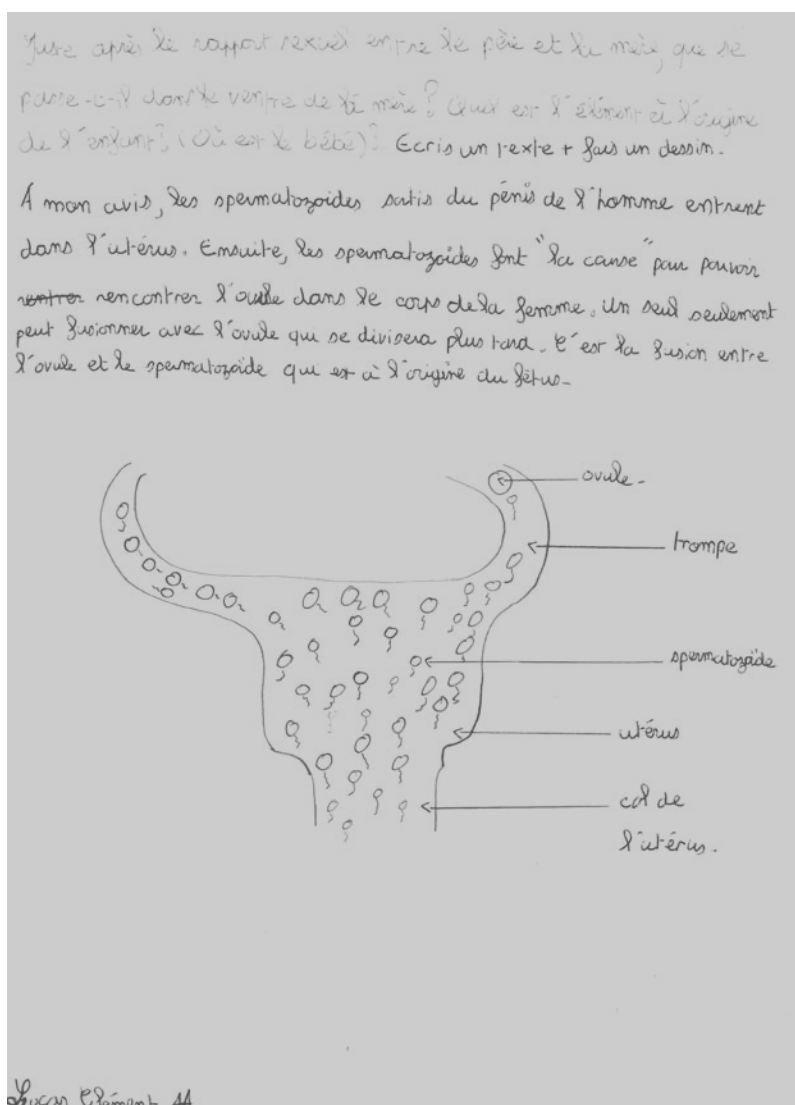 Juste après le rapport sexuel entre le père et la mère, que se
passe-t-il dans le ventre de la mère? Quel est l'élément à l'origine
de l'enfant? (Où est le bébé)? Ecris un texte + fais un dessin.
A mon avis, les spermatozoides sortis du pénis de l'homme entrent
dans l'utérus. Ensuite, les spermatozoides font "la course" pour pouvoir
rentrer rencontrer l'ovule dans le corps de la femme. Un seul seulement
peut fusionner avec l'ovule qui se divisera plus tard. C'est la fusion entre
l'ovule et le spermatozoïde qui est à l'origine du fétus.
ovule.
trompe
spermatozoïde
utérus
col de
l'utérus.
Lucas Clément 11